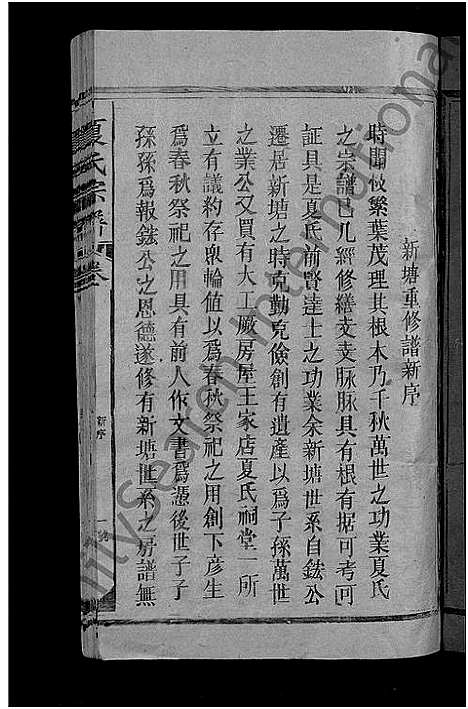 新塘重修譜新序
時聞枝繁葉茂理其根木乃千秋萬世之功業夏氏
之宗譜已几經修繕支支脉脉具有根有据可考可
証具是夏氏前賢達士之功業余新塘世系自鉉公
遷居新塘之時克勤克儉創有遺產以爲子孫萬世
之業公又買有大工厰房屋王家店夏氏祠堂一所
立有議約存衆輪值以爲春秋祭祀之用創下彦生
爲春秋祭祀之用具有前人作文書爲憑後世子子
孫孫爲報鉉公之恩德遂修有新塘世系之房譜無
夏氏宗譜
卷
新序
一
International